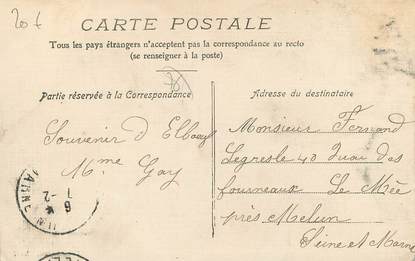 20 f
CARTE POSTALE
Tous les pays étrangers n'acceptent pas la correspondance au recto
(se renseigner à la poste)
Partie réservée à la Correspondance
Adresse du destinataire
Souvenir d Elbeuf
Mme Gay
Monsieur Fernand
Legresle 40 Quai des
fourneaux Le Mée
près Melun
Seine et Marne